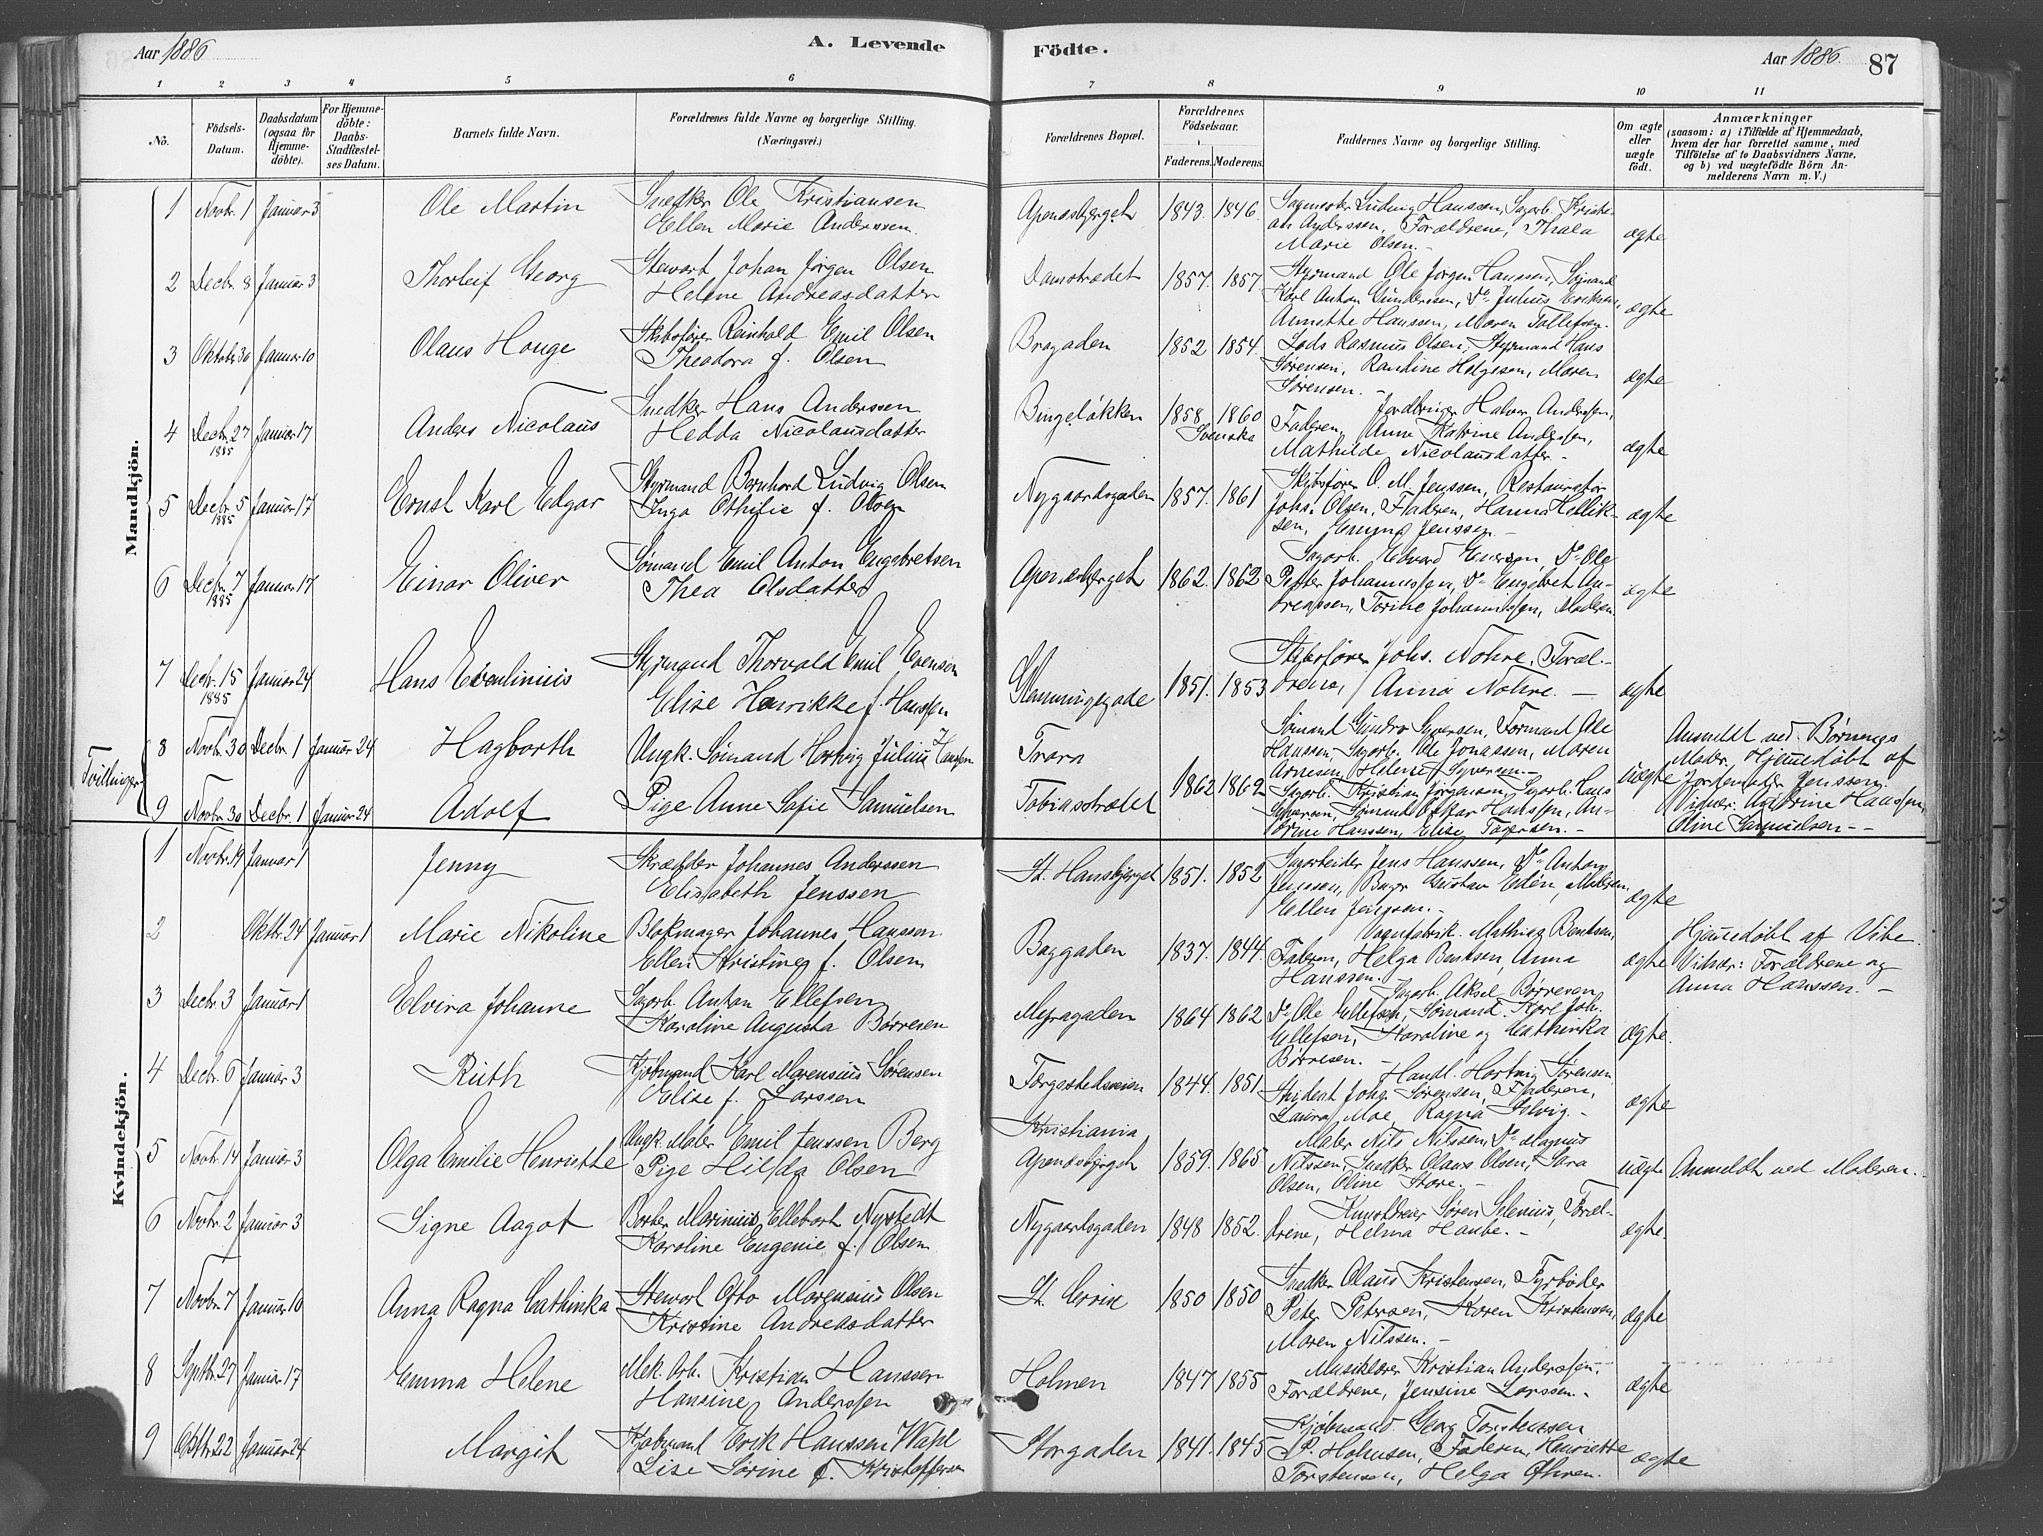 Aar 1886
A. Levende Födte.
Aar 1886.
87
1 2 3 4 5 6 7 8 9 10 11
No.
Födsels-Datum.
Daabsdatum (ogsaa for Hjemme-döbte).
For Hjemme-döbte: Daabs-Stadfæstel-ses Datum.
Barnets fulde Navn.
Forældrenes fulde Navne og borgerlige Stilling.
(Næringsvei.)
Forældrenes Bopæl.
Forældrenes Födselsaar.
Faderens. Moderens.
Faddernes Navne og borgerlige Stilling.
Om ægte eller uægte födt.
Anmærkninger
(saasom: a) i Tilfælde af Hjemmedaab,
hvem der har forrettet samme, med
Tilföielse af to Daabsvidners Navne,
og b) ved uægtefödte Börn An-
melderens Navn m. V.)
Mandkjön.
1 Novbr. 1 Januar 3 Ole Martin Snedker Ole Kristiansen
Ellen Marie Anderssen.
Apenesbjerget 1843. 1846. Sagmester Ludvig Hanssen, Sagarb. Kristi-
an Anderssen, Forældrene, Thala
Marie Olsen. - ægte
2 Decbr. 8 Januar 3 Thorleif Georg Stewart Johan Jörgen Olsen
Helene Andreasdatter
Damstrædet 1857. 1857. Styrmand Ole Jörgen Hanssen, Sömand
Karl Anton Gundersen, Do Julius Eriksen,
Annette Hanssen, Maren Tollefsen. ægte
3 Oktobr. 30 Januar 10 Olaus Hauge Skibsförer Reinhold Emil Olsen
Theodora f. Olsen
Bragaden 1852 1854. Lods Rasmus Olsen, Styrmand Hans
Sörensen, Randine Helgesen, Maren
Sörensen. - ægte
4 Decbr. 27 1885 Januar 17 Anders Nicolaus Snedker Hans Anderssen
Hedda Nicolausdatter
Bingeløkken 1858. 1860 Svenske
Jordbruger Halvor Anderssen,
Faderen, Anne Katrine Andersen,
Mathilde Nicolausdatter. - ægte
5 Decbr. 5 1885 Januar 17 Ernst Karl Edgar Styrmand Bernhard Ludvig Olsen
Inga Othilie f. Olsen
Nygaardsgaden 1857. 1861 Skibsförer O. M. Jenssen, Restauratör
Johs. Olsen, Faderen, Hanna Hellik-
sen, Jenssen. - ægte
6 Decbr. 7 1885 Januar 17 Einar Oliver Sömand Emil Anton Engebretsen
Thea Olsdatter
Apenesbjerget 1862. 1862 Sagarb. Edvard Enersen, Do Ole
Petter Johannessen, Do Engebret An-
dreassen, Torine Johannssen, Moderen ægte
7 Decbr. 15 1885 Januar 24 Hans Evenlinius Styrmand Thorvald Emil Evensen
Elise Henrikke f. Hanssen
Glemmingegade 1851. 1853 Skibsförer Johs. Nohre, Foræl-
drene, Anna Nohre. - ægte
Tvillinger
8 Novbr. 30 Decbr. 1 Januar 24 Hagbarth Ungk. Sömand Hartvig Julius Hanssen
Trara
Sömand Syversen, Formand Ole
Hanssen, Sagarb. Ole Jonassen, Maren
Arnesen, Helene Syversen. -
uægte
Anmeldt ved Børnenes
Moder. Hjemmedøbt af
Jordemoder Jenssen.
Vidner: Katrine Hanssen,
Oline Samuelsen - -
9 Novbr. 30 Decbr. 1 Januar 24 Adolf Pige Anne Sofie Samuelsen
Tobiasstrædet 1862 1862 Sagarb. Kristian Jörgensen, Sagarb. Lars
Syversen, Sömand Hanssen, An-
Hanssen, Elise - 
Kvindekjön.
1 Novbr. 19 Januar 1 Jenny Skrædder Johannes Anderssen
Elisabeth Jenssen
St. Hansbjerget 1851. 1852 Sagarbeider Jens Hanssen, Do Anton
Jenssen, Bager Gustav Edén, Moderen,
Ellen Jenssen. - ægte
2 Oktbr. 24 Januar 1 Marie Nikoline Blokmager Johannes Hanssen.
Ellen Kristine f. Olsen
Baggaden 1837. 1844. Vognfabrik. Mathias Bentsen,
Faderen, Helga Bentsen, Anna
Hanssen - ægte
Hjemmedøbt af Vibe.
Vidner: Forældrene og
Anna Hanssen. -
3 Decbr. 3 Januar 1 Elvira Johanne Sagarb. Anton Ellefsen
Karoline Augusta Börresen
1864 1862 Sagarb. Aksel Börresen
Do Ole Ellefsen, Sömand Karl Joh.
Ellefsen, Karoline og Cathinka
Börresen. ægte.
4 Decbr. 6 Januar 3 Ruth Kjöbmand Karl Marensius Sörensen
Elise f. Larssen
Færgestedsveien 1844. 1851. - Handl. Hartvig Sörensen,
Student Johs. Sörensen, Faderen,
Laura Moe, Ragna Solvig. - ægte
5 Novbr. 14 Januar 3 Olga Emilie Henriette Ungk. Maler Emil Jenssen Berg
Pige Hilda Olsen
Kristiania
Apenesbjerget 1859. 1865 Maler Nils Nilssen, Do Magnus
Nilssen, Snedker Olaus Olsen, Sara
Olsen, Oline Store. - uægte Anmeldt ved Moderen.
6 Novbr. 2 Januar 3 Signe Aagot Barber Marinius Ellebart Nystedt
Karoline Eugenie f. Olsen
Nygaardsgaden 1848 1852. Kunstdreier Sören Selenius, Foræl-
drene, Helma Haube. - ægte.
7 Novbr. 7 Januar 10 Anna Ragna Cathinka Stewart Otto Marensius Olsen
Kristine Andreasdatter
St. Croix 1850 1850 Snedker Olaus Kristensen, Fyrböder
Peter Petersen, Karen Kristensen,
Maren Nilssen. - ægte
8 Septbr. 27 Januar 17 Emma Helene Mek. Arb. Kristian Hanssen
Hansine Anderssen
Holmen 1847 1855 Musiklærer Kristian Anderssen,
Forældrene, Jensine Larssen. - ægte
9 Oktbr. 22 Januar 24 Margit Kjöbmand Erik Hanssen Wahl
Lise Sörine f. Kristoffersen
Storgaden 1841. 1845 Kjöbmand Georg Torstensen
P. Holmsen, Faderen, Henriette
Torstensen, Helga Othren. ægte